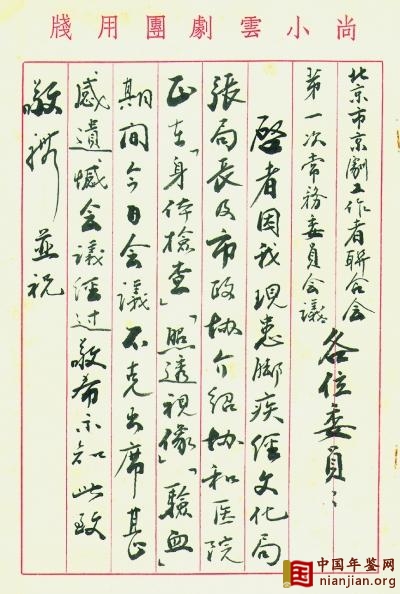 尚小雲劇團用牋
北京市京劇工作者聯合會
第一次常務委員會議
各位委員：
啓者因我現患脚疾經文化局
張局長及市政协介紹协和医院
正在「身体檢查」「照透視像」「驗血」
期间今日会議不克出席甚
感遺憾会議经过敬希示知此致
敬礼 並祝
中国年鉴网
nianjian.org